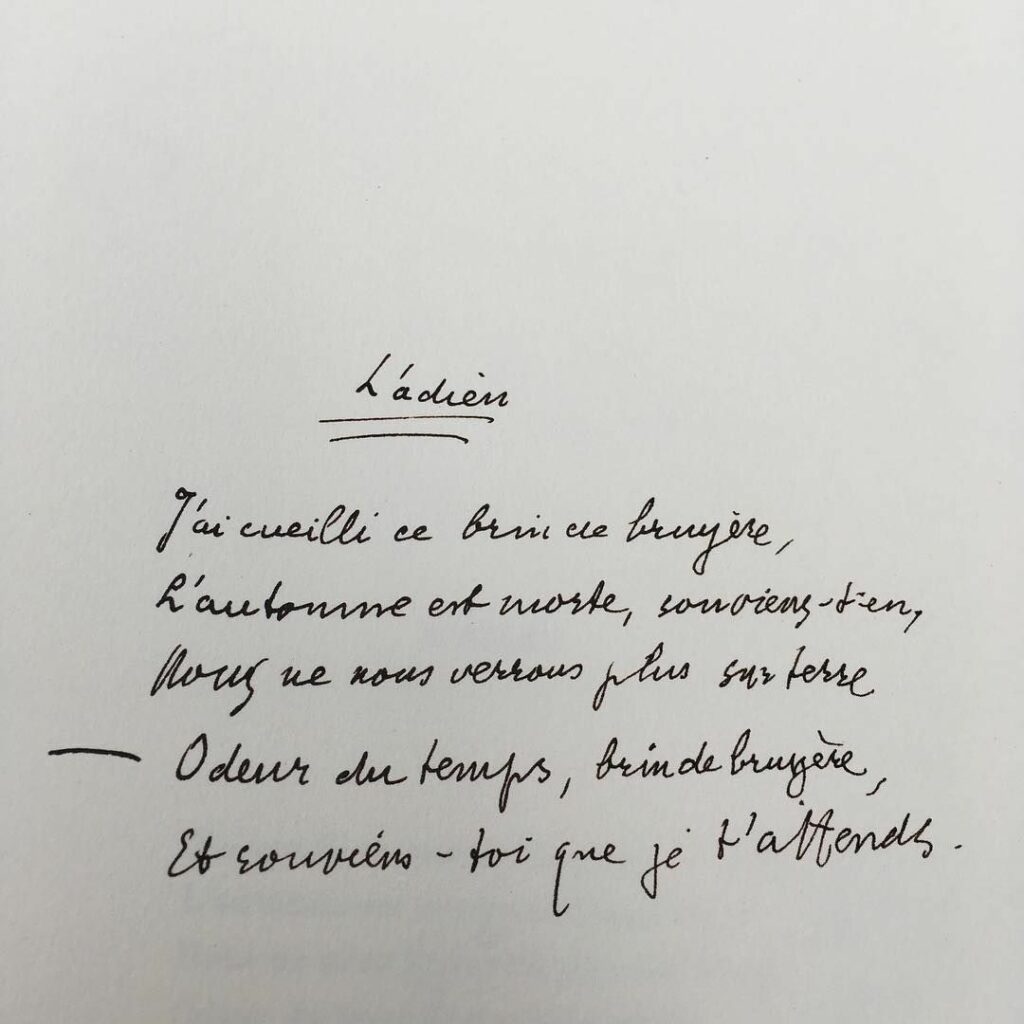 L'adieu
J'ai cueilli ce brin de bruyère,
L'automne est morte, souviens-t'en,
Nous ne nous verrons plus sur terre
— Odeur du temps, brin de bruyère,
Et souviens-toi que je t'attends.